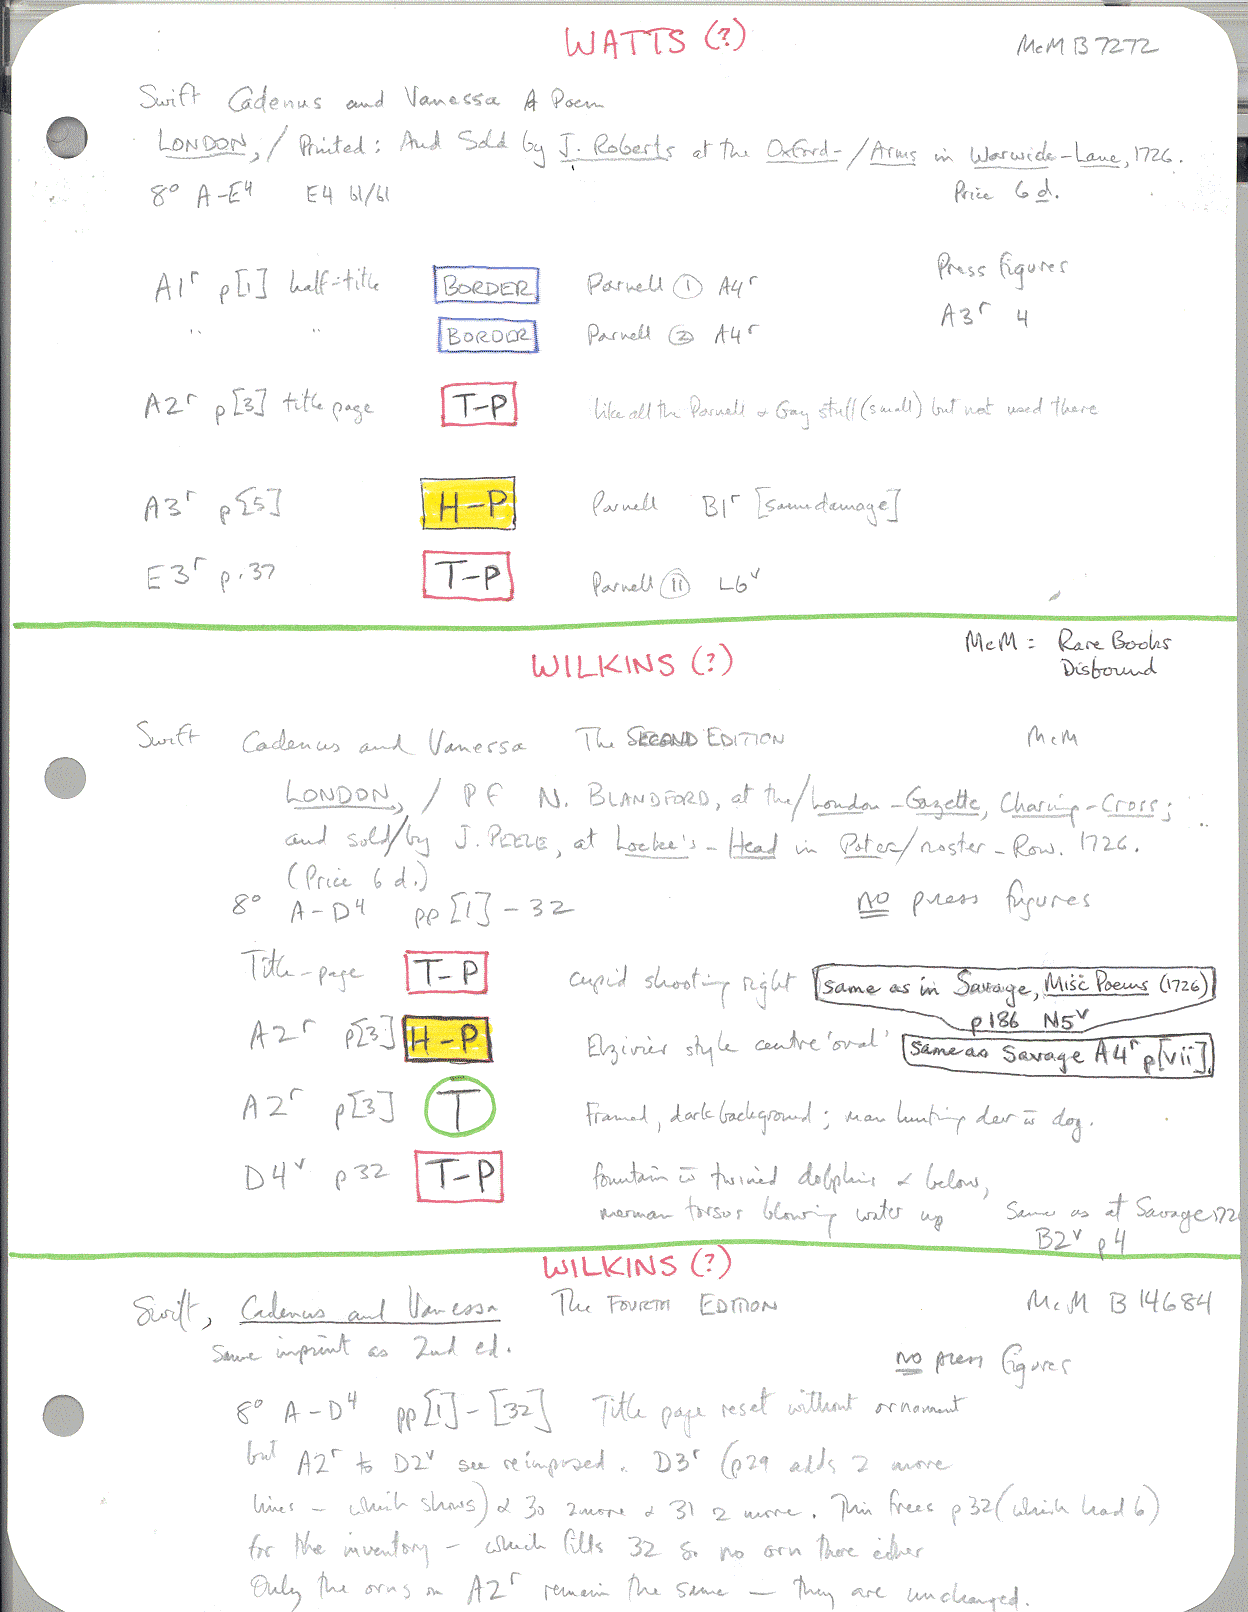 WATTS (?)
McM B 7272
Swift Cadenus and Vanessa A Poem
LONDON, / Printed: And Sold by J. Roberts at the Oxford- / Arms in Warwick-Lane, 1726.
8° A-E4 E4 bl/bl
Price 6 d.
Press figures
A1r p[1] half-title BORDER Parnell 1 A4r
A3r 4
" " BORDER Parnell 2 A4r
A2r p[3] title page T-P like all the Parnell & Gay stuff (small) but not used there
A3r p[5] H-P Parnell B1r [same damage]
E3r p.37 T-P Parnell 11 L6v
McM = Rare Books
Disbound
WILKINS (?)
Swift Cadenus and Vanessa The SECOND EDITION McM
LONDON, / P F N. BLANDFORD, at the / London-Gazette, Charing-Cross;
and sold / by J. PEELE, at Locke's-Head in Pater / noster-Row. 1726.
(Price 6 d.)
8° A-D4 pp [1]-32 no press figures
Title-page T-P cupid shooting right same as in Savage, Misc Poems (1726)
p186 N5v
A2r p[3] H-P Elzivier style centre 'oval' same as Savage A4r p[vii].
A2r p[3] T Framed, dark background; man hunting deer w dog.
D4v p32 T-P fountain w twined dolphins & below,
merman torsos blowing water up Same as at Savage 172
B2v p4
WILKINS (?)
Swift, Cadenus and Vanessa The FOURTH EDITION McM B 14684
Same imprint as 2nd ed.
no press figures
8° A-D4 pp [1]-[32] Title page reset without ornament
but A2r to D2v are reimposed. D3r (p29 adds 2 more
lines - which shows) & 30 2 more & 31 2 more. This frees p32 (which had 6)
for the inventory - which fills 32 so no orn there either
Only the orns on A2r remain the same - they are unchanged.